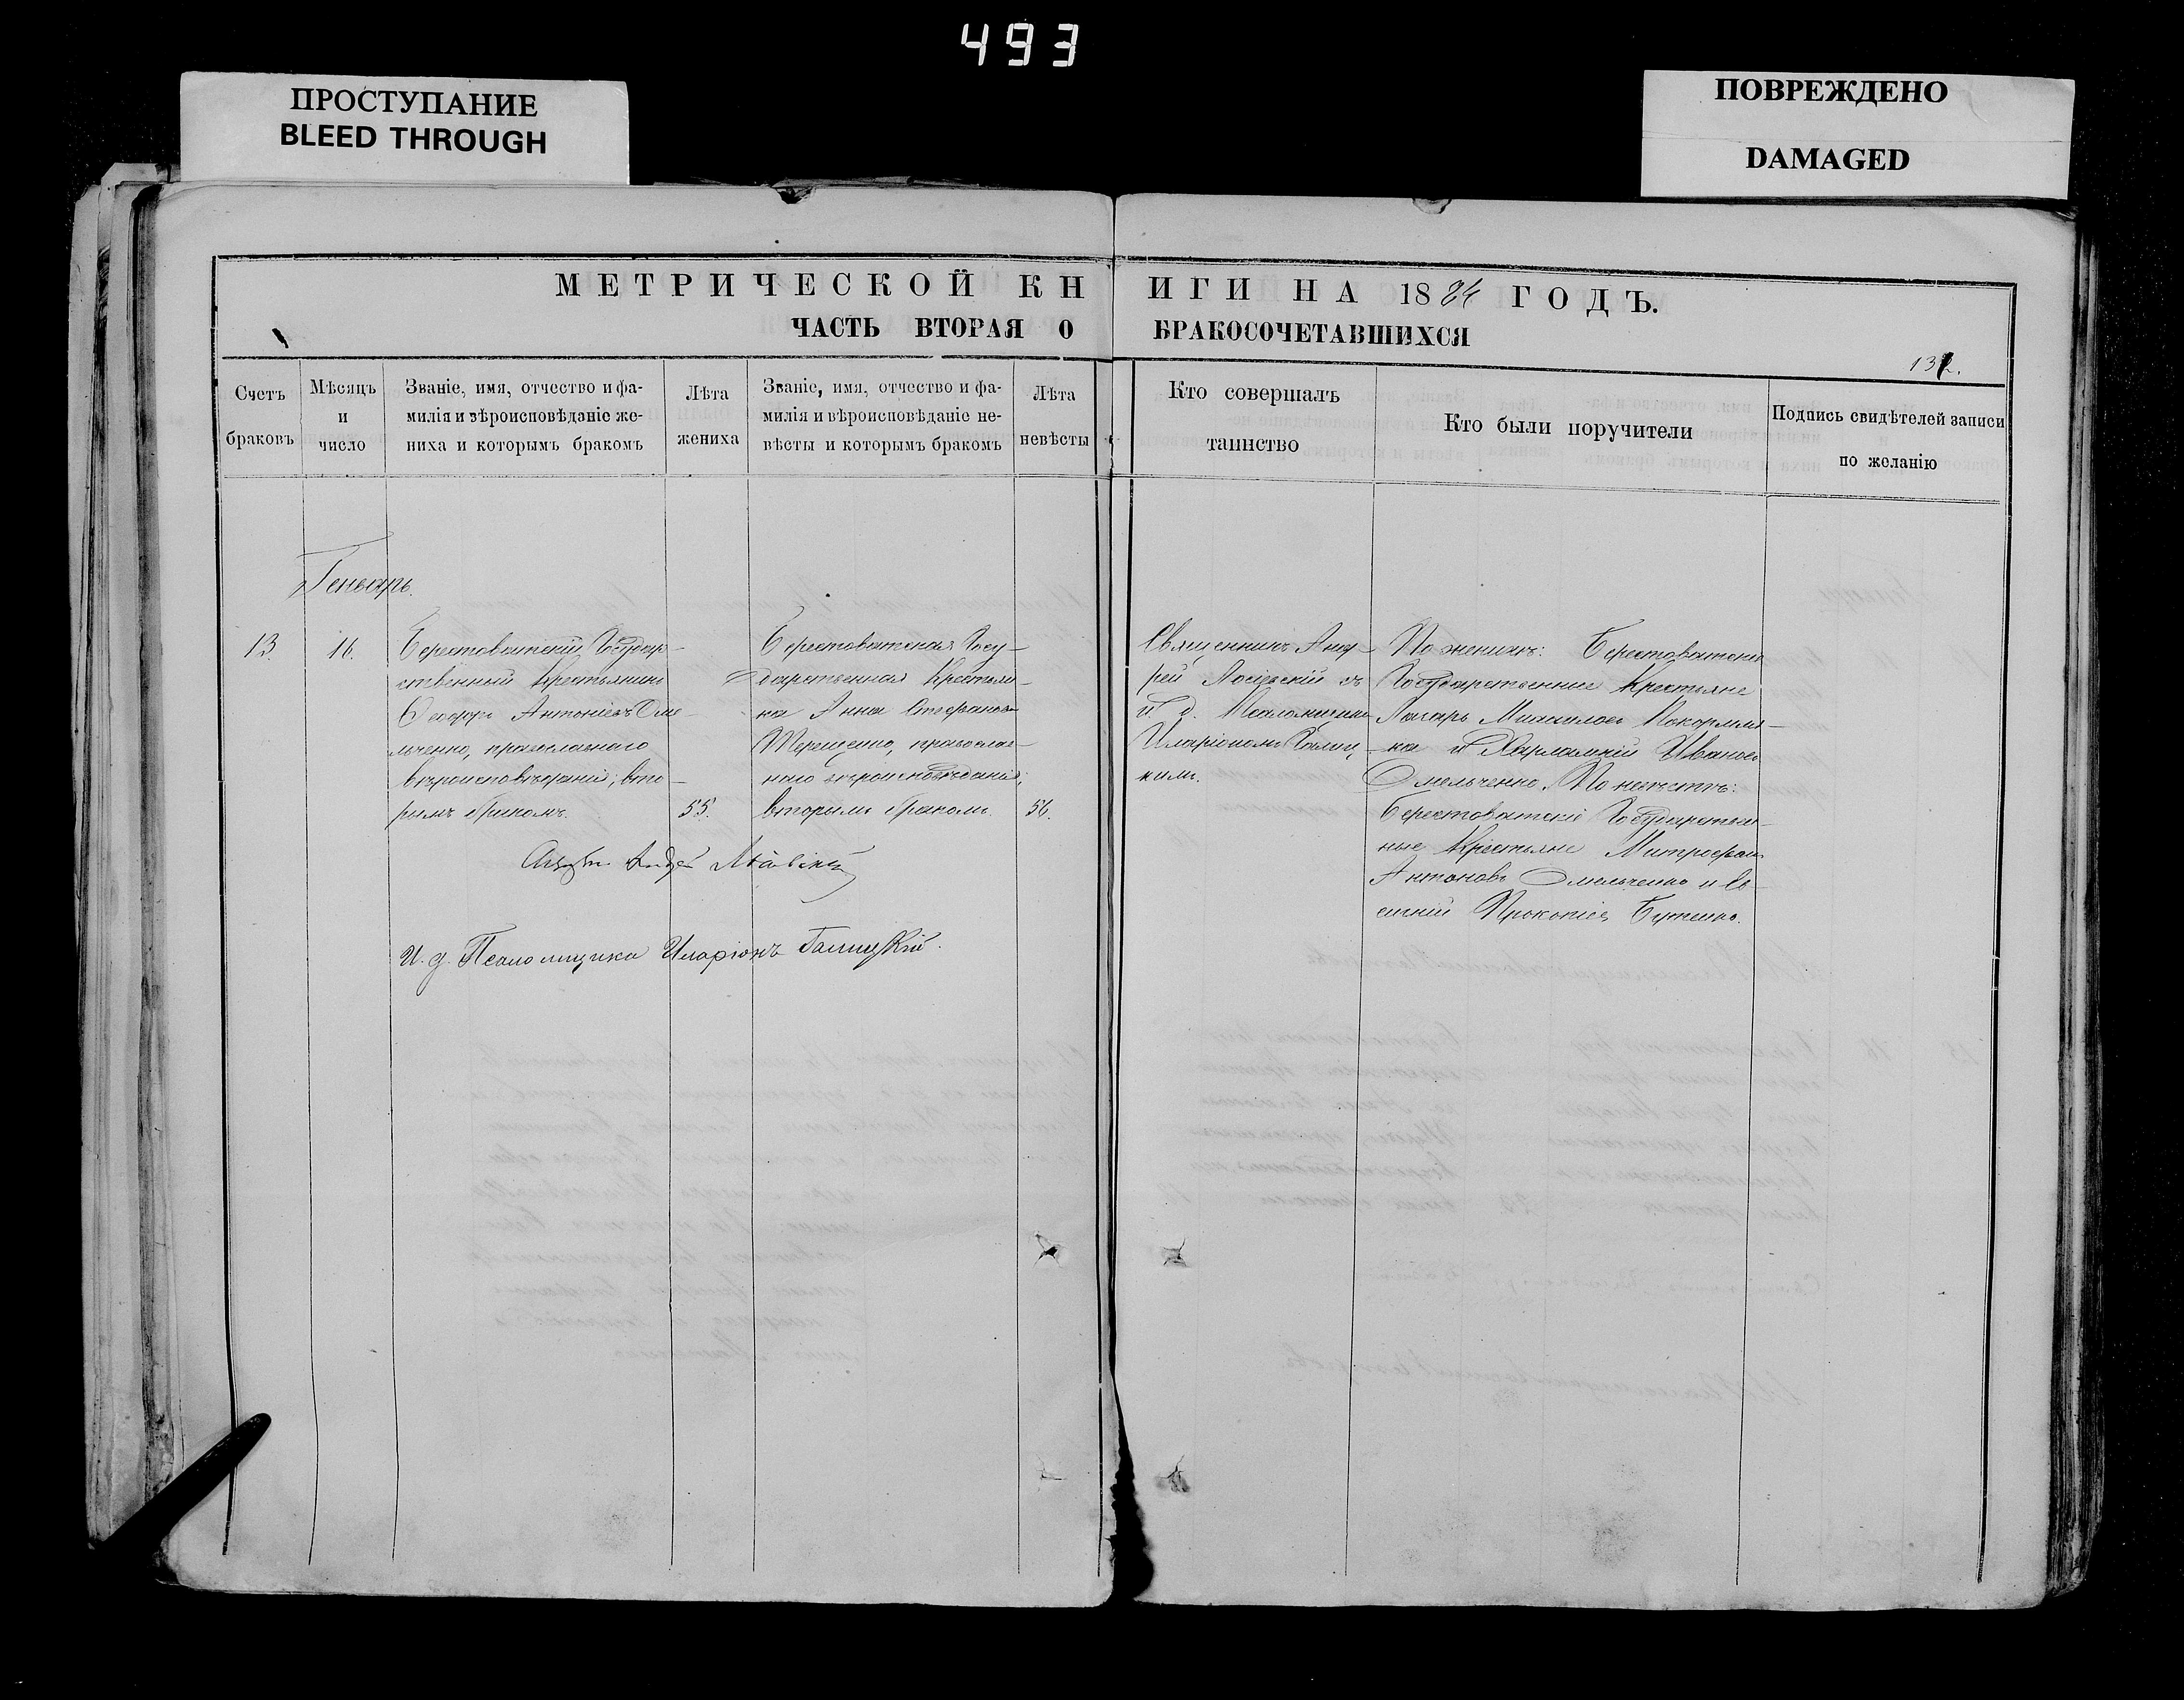 493
ПРОСТУПАНИЕ
BLEED THROUGH
ПОВРЕЖДЕНО
DAMAGED
МЕТРИЧЕСКОЙ КН ИГИ НА 1884 ГОДЪ.
ЧАСТЬ ВТОРАЯ О БРАКОСОЧЕТАВШИХСЯ
132.
Счетъ
браковъ
Мѣсяцъ
и
число
Званіе, имя, отчество и фа-
милія и вѣроисповѣданіе же-
ниха и которымъ бракомъ
Лѣта
жениха
Званіе, имя, отчество и фа-
милія и вѣроисповѣданіе не-
вѣсты и которымъ бракомъ
Лѣта
невѣсты
Кто совершалъ
таинство
Кто были поручители
Подпись свидѣтелей записи
по желанію
Генварь.
13.
16.
Берестоватскій Государ-
ственный Крестьянинъ
Антоніевъ Оме-
льченко, православнаго
вѣроисповѣданія; вто-
рымъ бракомъ.
55.
Берестоватская Госу-
дарственная Крестьян-
ка Анна Стефанова
Терещенко, православ-
наго вѣроисповѣданія;
вторымъ бракомъ.
56.
Священникъ Анд-
рей съ
и. д. Псаломщика
Иларіономъ Галиц-
кимъ.
По женихѣ: Берестоватскіе
Государственные Крестьяне
Михайловъ
и Харлампій Ивановъ
Омельченко. По невѣстѣ:
Берестоватскіе Государствен-
ные Крестьяне Митрофанъ
Антоновъ Омельченко и Ев-
Прокопіевъ
Андрей
И. д. Псаломщика Иларіонъ Галицкій.